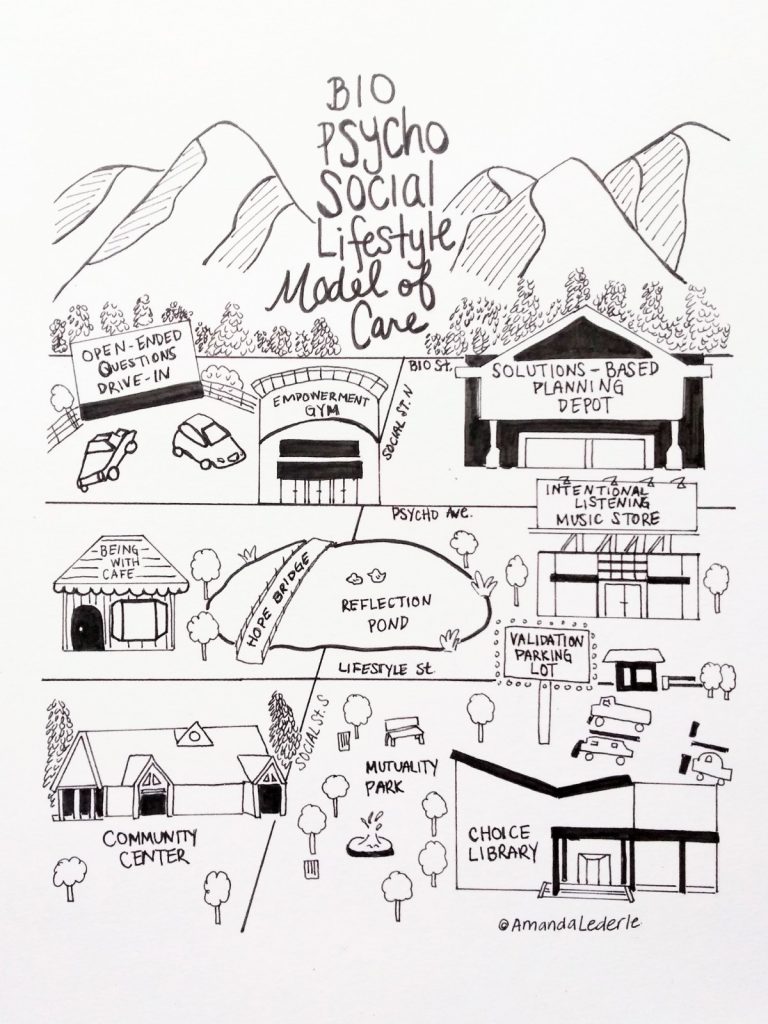 BIO
PSycho
Social
Lifestyle
Model of
Care
OPEN-ENDED
QUESTIONS
DRIVE-IN
EMPOWERMENT
GYM
SOCIAL ST. N
BIO St.
SOLUTIONS-BASED
PLANNING
DEPOT
PSYCHO AVE.
INTENTIONAL
LISTENING
MUSIC STORE
-BEING-
WITH
CAFE
HOPE BRIDGE
REFLECTION
POND
VALIDATION
PARKING
LOT
LIFESTYLE ST.
SOCIAL ST. S
MUTUALITY
PARK
COMMUNITY
CENTER
CHOICE
LIBRARY
@AmandaLederle